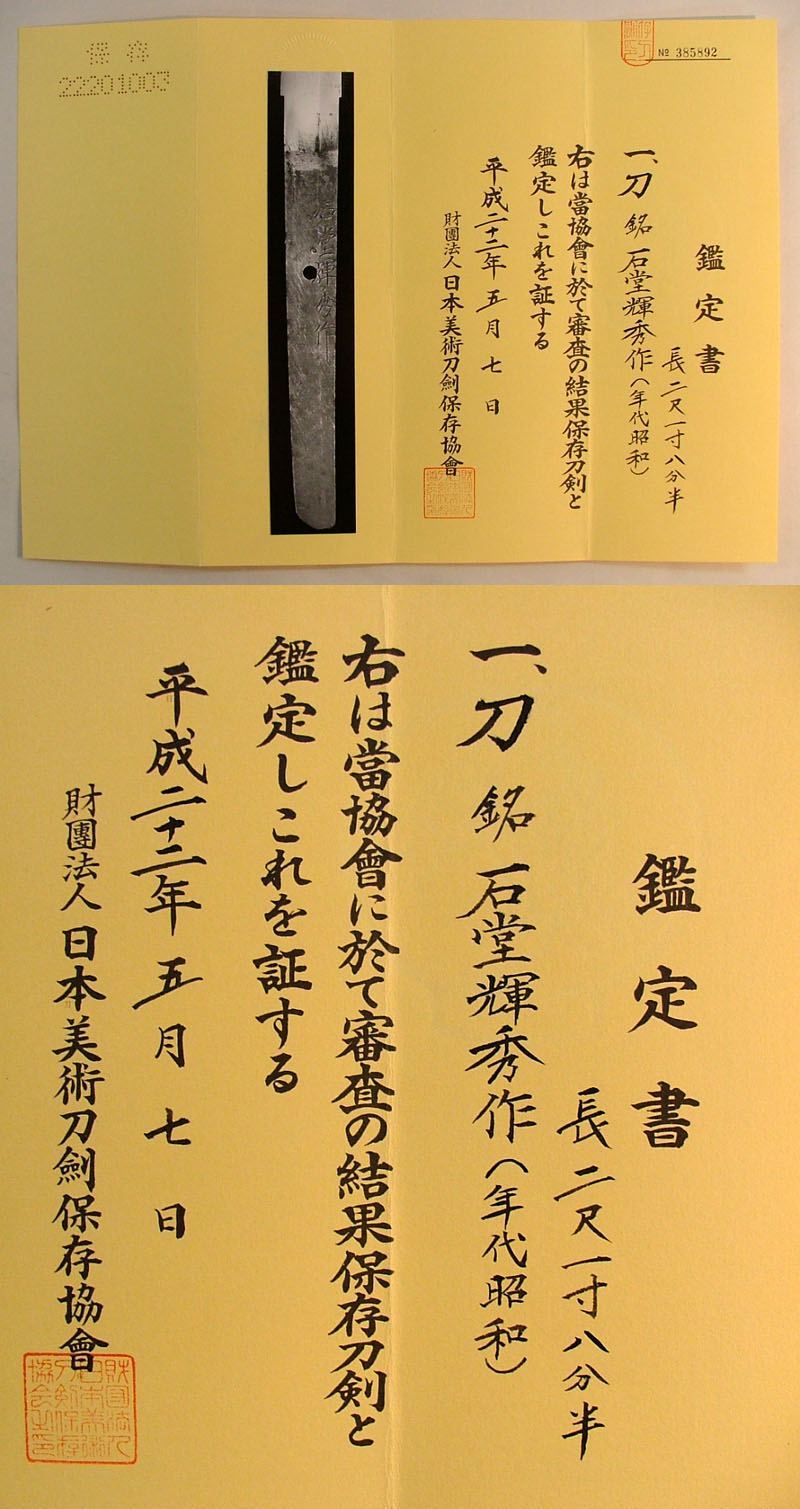 № 385892
鑑定書
長二尺一寸八分半
一、刀 銘 石堂輝秀作(年代昭和)
右は當協會に於て審査の結果保存刀剣と
鑑定しこれを証する
平成二十二年五月七日
財團法人日本美術刀劍保存協會
石堂輝秀作
保存
22201003
鑑定書
長二尺一寸八分半
一、刀 銘 石堂輝秀作(年代昭和)
右は當協會に於て審査の結果保存刀剣と
鑑定しこれを証する
平成二十二年五月七日
財團法人日本美術刀劍保存協會